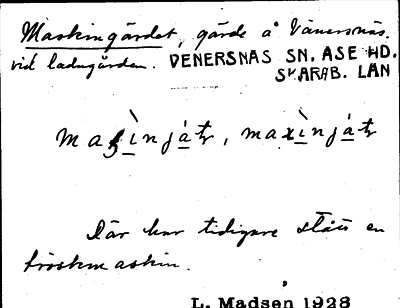 Maskingärdet, gärde å Vänersnäs.
vid ladugården. VENERSNAS SN. ASE HD.
SKARAB. LAN
Där har tidigare stått en
tröskmaskin.
L. Madsen 1928